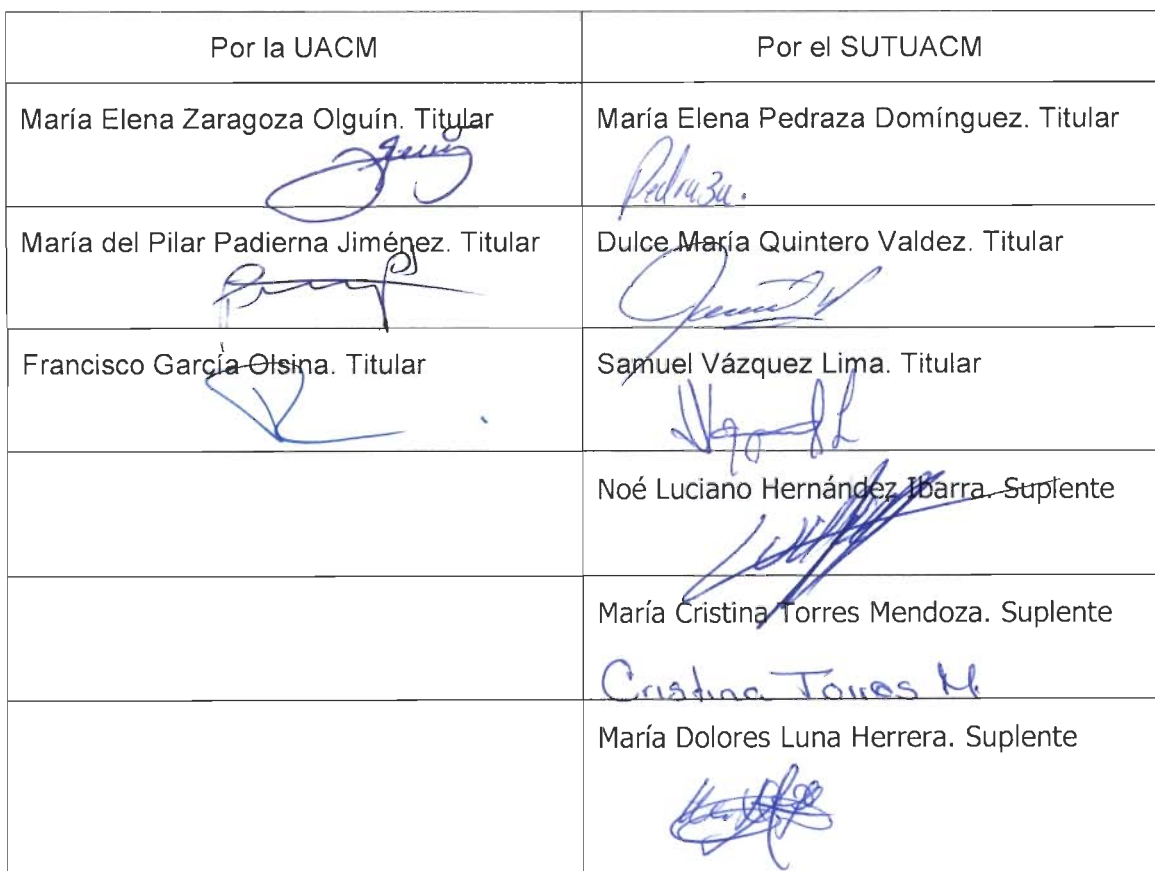 Por la UACM
Por el SUTUACM
María Elena Zaragoza Olguín. Titular
María Elena Pedraza Domínguez. Titular
Pedraza.
María del Pilar Padierna Jiménez. Titular
Dulce María Quintero Valdez. Titular
Francisco García Olsina. Titular
Samuel Vázquez Lima. Titular
Noé Luciano Hernández Ibarra. Suplente
María Cristina Torres Mendoza. Suplente
Cristina Torres M.
María Dolores Luna Herrera. Suplente